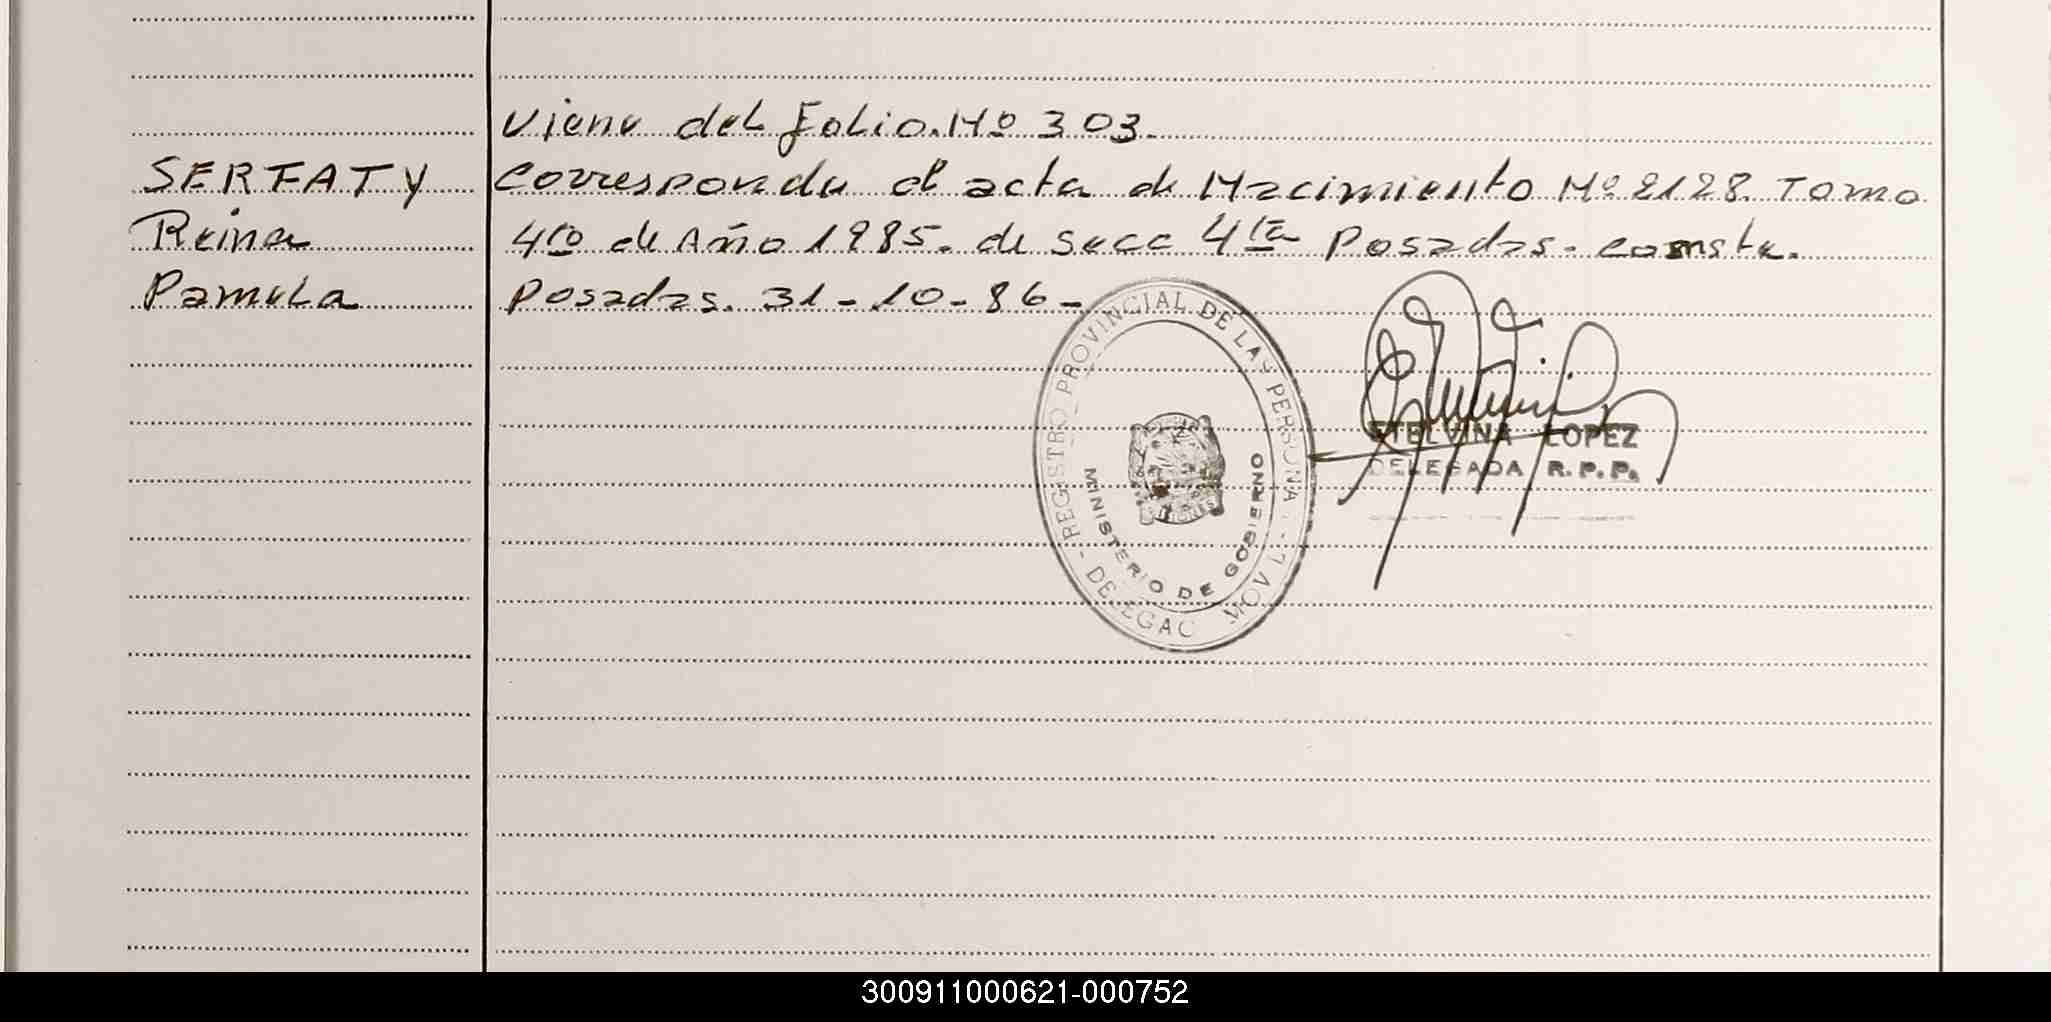 Viene del folio Nº 303.
SERFATY Corresponde al acta de Nacimiento Nº 2128. Tomo
Reina 4to de Año 1985. de Secc 4ta Posadas - Conste.
Pamela Posadas. 31 - 10 - 86 -
REGISTRO PROVINCIAL DE LAS PERSONA
MINISTERIO DE GOBIERNO
MOVIL
ETELVINA LOPEZ
DELEGADA R.P.P.
300911000621-000752